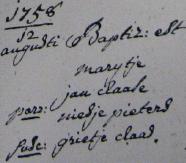 1758
12
augusti Baptiz: est
marytje
par: jan claase
niesje pieters
susc: grietje claas.